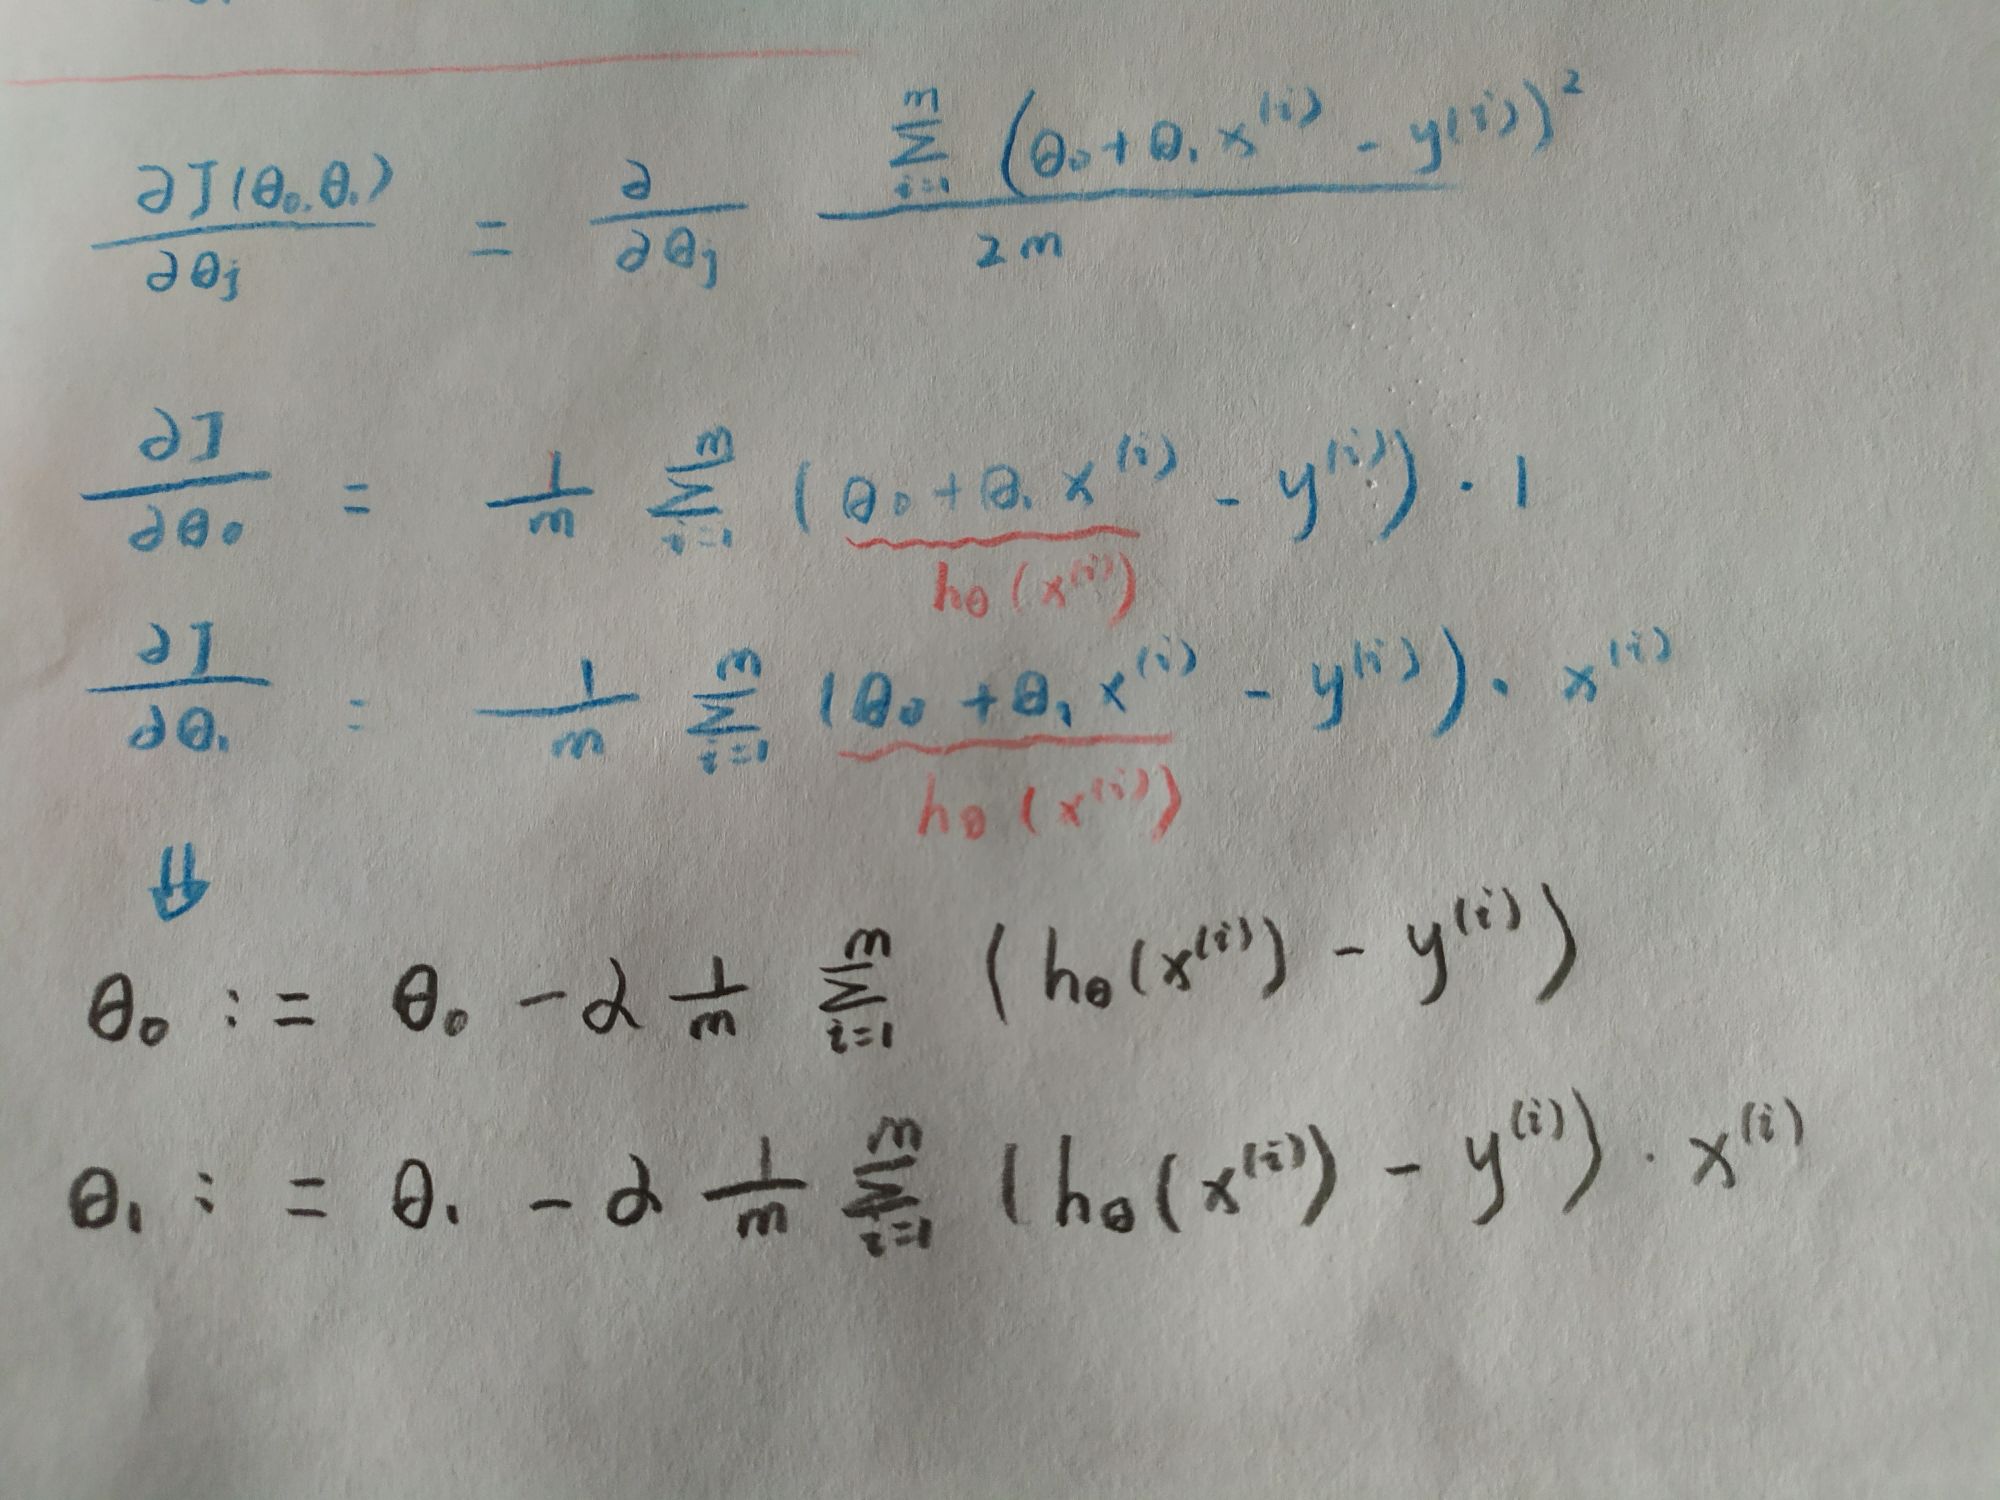 ∂J(θ₀.θ₁)/∂θⱼ = ∂/∂θⱼ ∑ᵢ₌₁ᵐ (θ₀+θ₁x⁽ⁱ⁾ - y⁽ⁱ⁾)² / 2m
∂J/∂θ₀ = 1/m ∑ᵢ₌₁ᵐ (θ₀+θ₁x⁽ⁱ⁾ - y⁽ⁱ⁾) · 1
hθ(x⁽ⁱ⁾)
∂J/∂θ₁ = 1/m ∑ᵢ₌₁ᵐ (θ₀+θ₁x⁽ⁱ⁾ - y⁽ⁱ⁾) · x⁽ⁱ⁾
hθ(x⁽ⁱ⁾)
⇓
θ₀ := θ₀ - α 1/m ∑ᵢ₌₁ᵐ (hθ(x⁽ⁱ⁾) - y⁽ⁱ⁾)
θ₁ := θ₁ - α 1/m ∑ᵢ₌₁ᵐ (hθ(x⁽ⁱ⁾) - y⁽ⁱ⁾) · x⁽ⁱ⁾